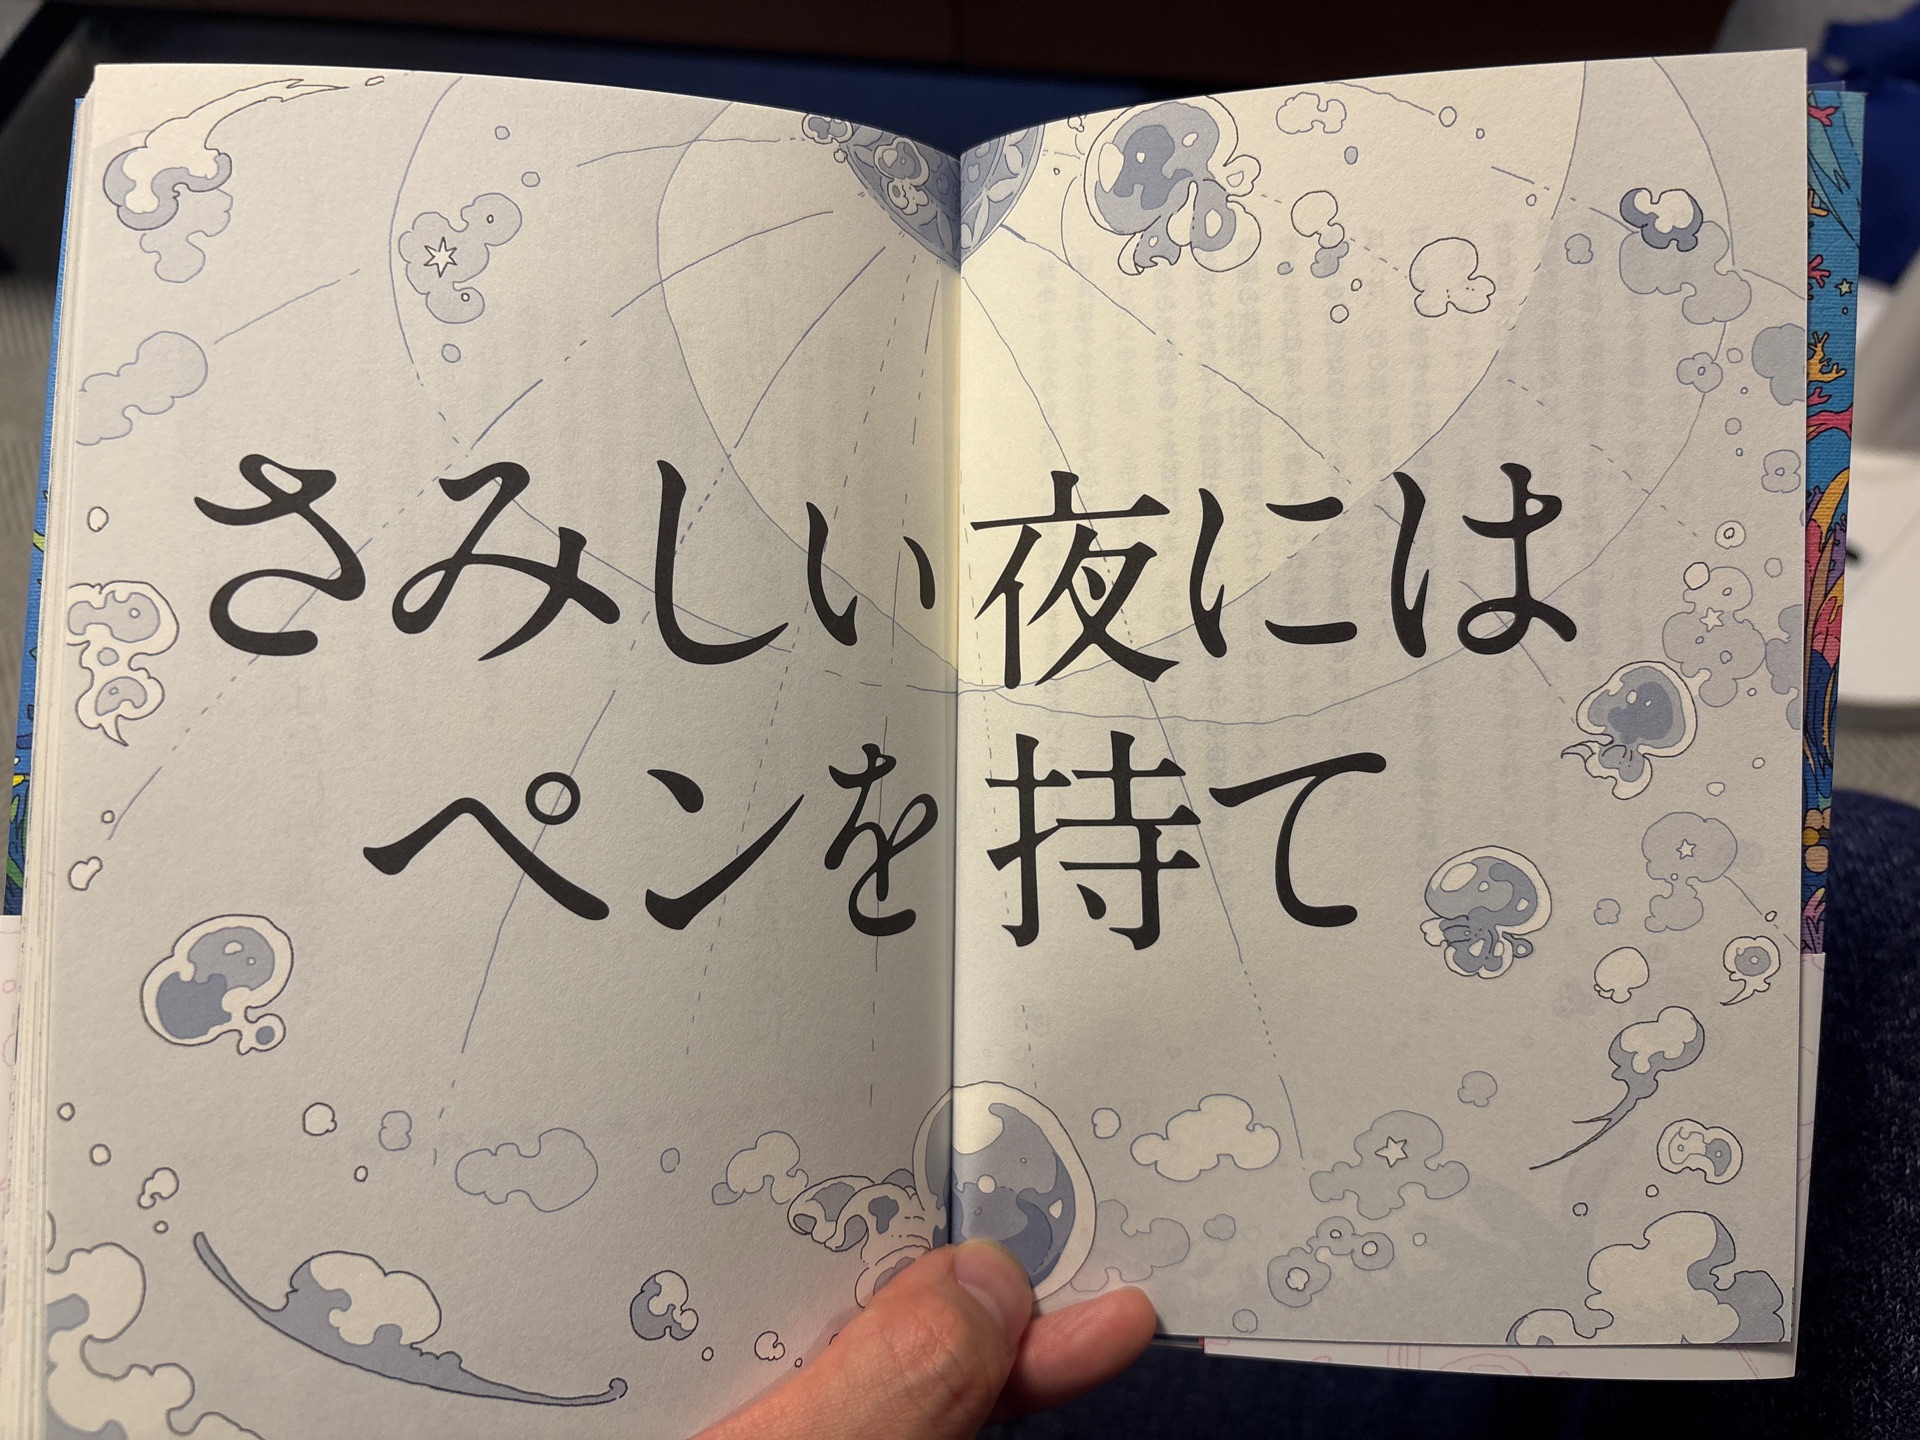 さみしい夜には
ペンを持て